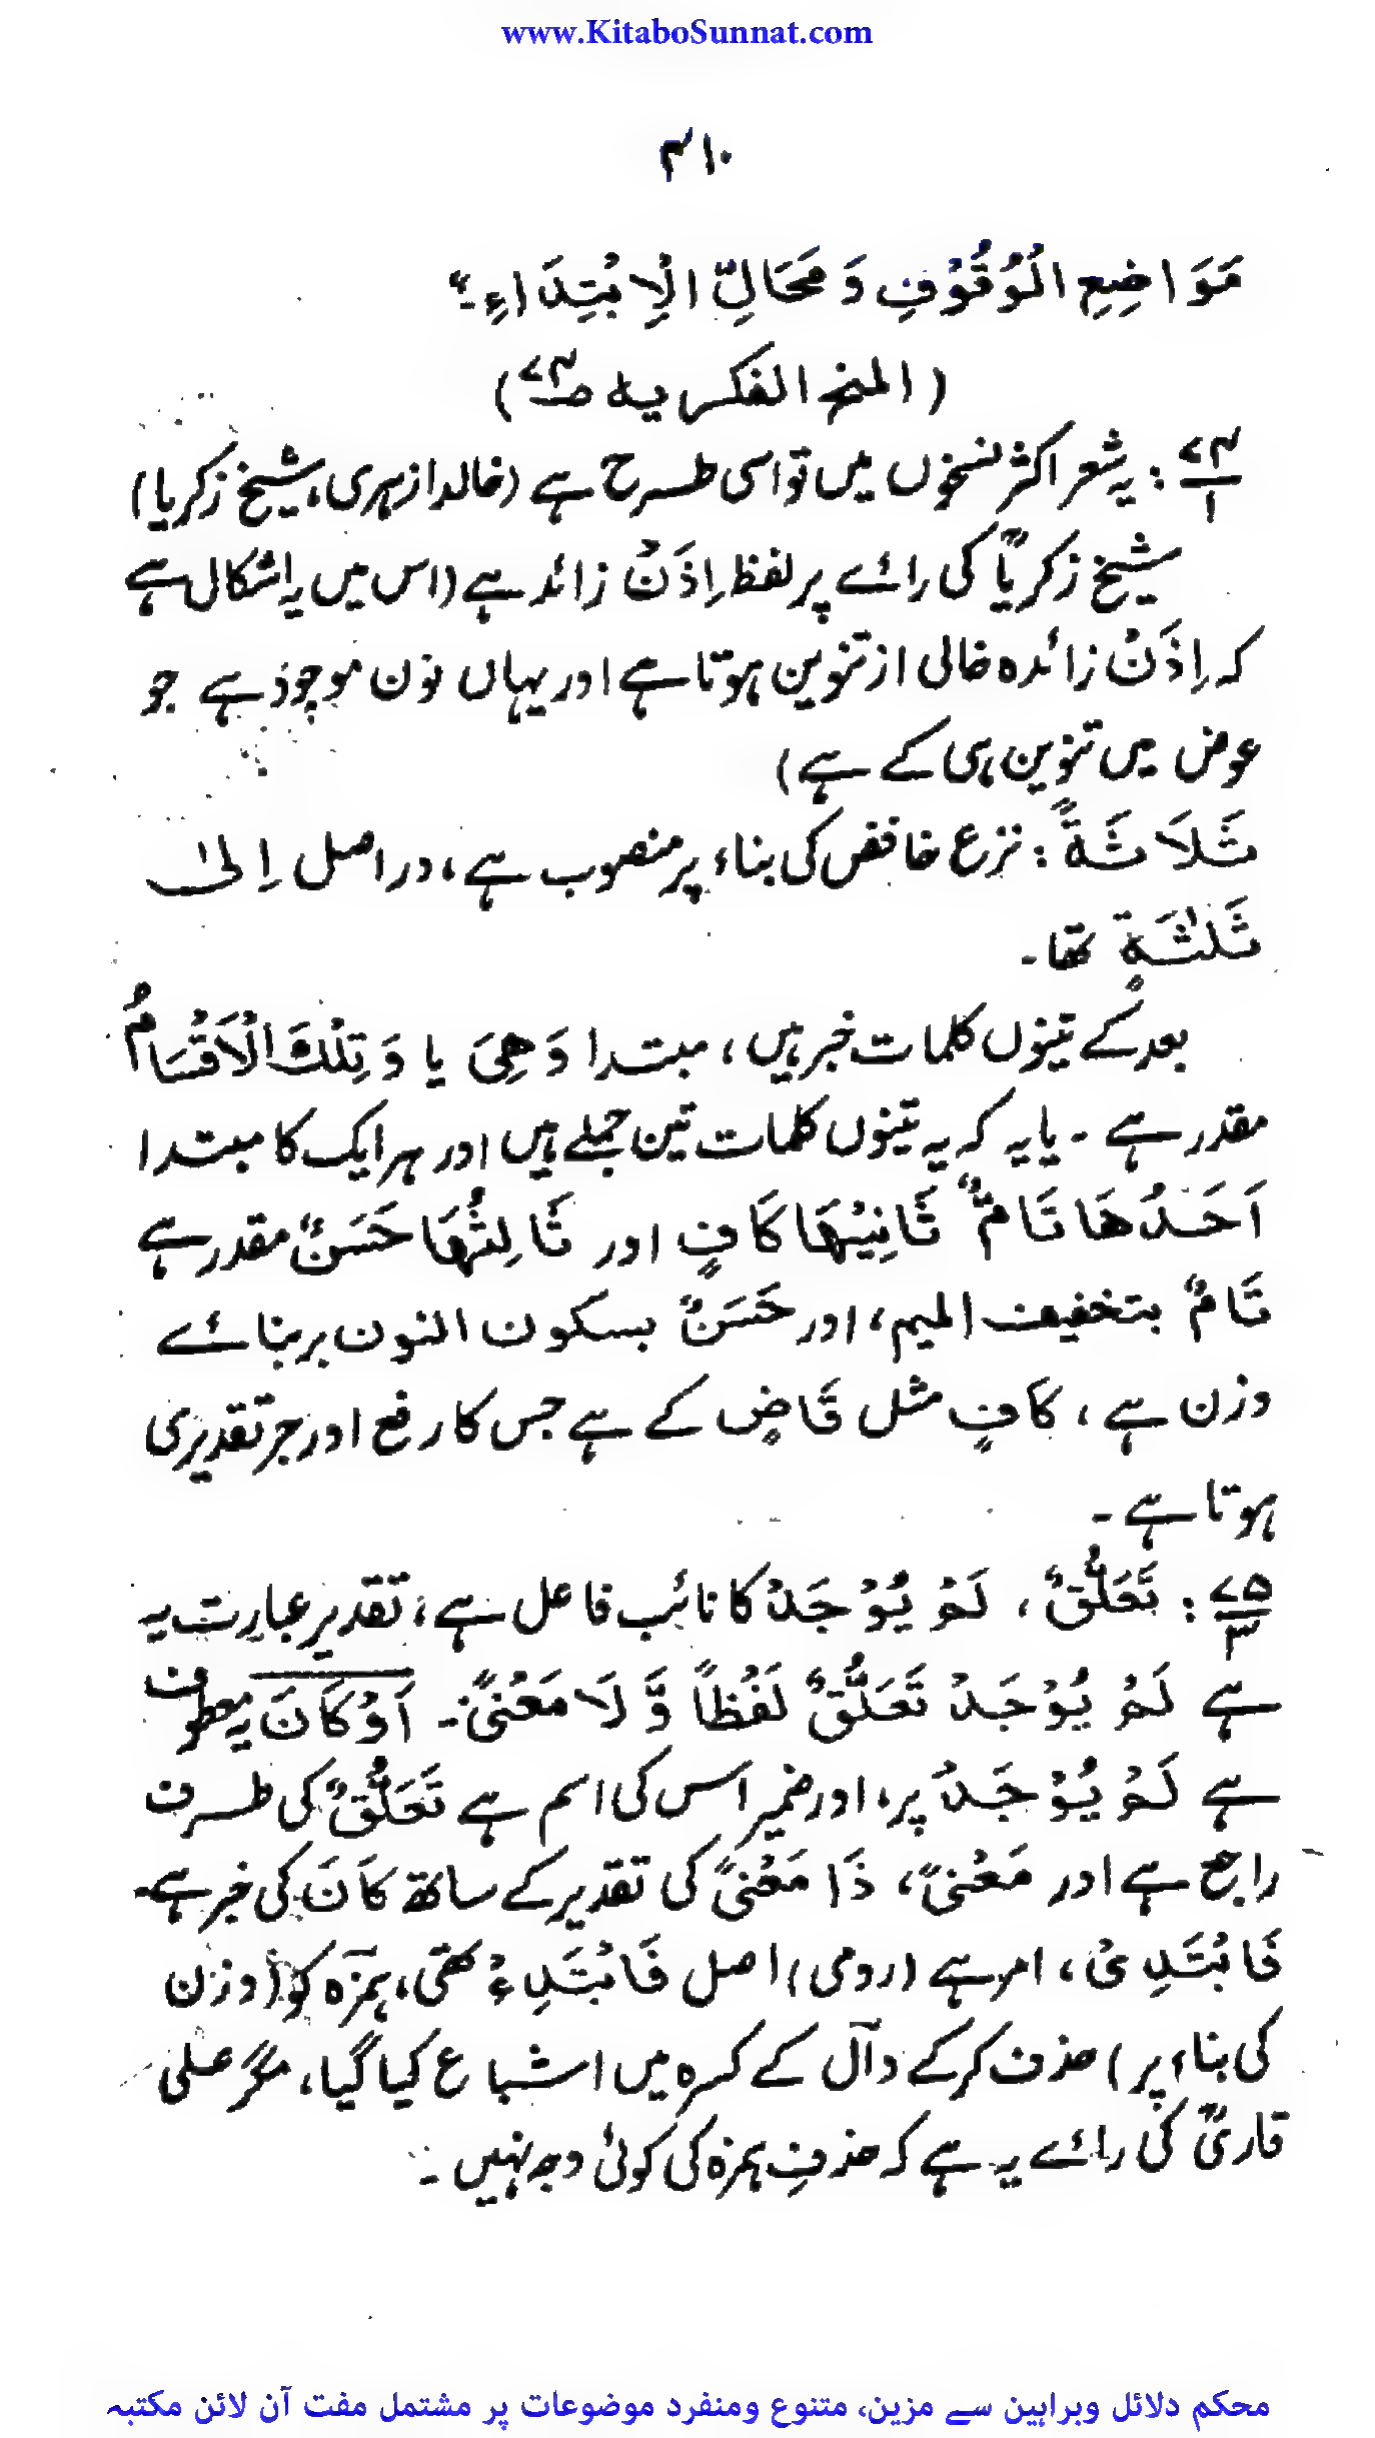 www.KitaboSunnat.com
۳۱۰
مَوَاضِعِ الْوُقُوْفِ وَ مَحَالِّ الْاِبْتِدَاءِ۔"
(المنح الفکریہ ص۷۴)
۷۴/۱ : یہ شعر اکثر نسخوں میں تو اسی طرح ہے (خالد ازہری، شیخ زکریا)
شیخ زکریاؒ کی رائے پر لفظ اِذَنْ زائد ہے (اس میں یہ اشکال ہے
کہ اِذَنْ زائدہ خالی از تنوین ہوتا ہے اور یہاں نون موجود ہے جو
عوض میں تنوین ہی کے ہے)
ثَلَاثَةً : نزع خافض کی بناء پر منصوب ہے، در اصل اِلیٰ
ثَلٰثَةٍ تھا۔
بعد کے تینوں کلمات خبر ہیں، مبتدا وَ هِیَ یا وَ تِلْكَ الْاَقْسَامُ
مقدر ہے ۔ یا یہ کہ یہ تینوں کلمات تین جملے ہیں اور ہر ایک کا مبتدا
اَحَدُهَا تَامٌّ ثَانِیْهَا کَافٍ اور ثَالِثُهَا حَسَنٌ مقدر ہے
تَامٌ بتخفیف المیم، اور حَسَنٌ بسکون النون بر بنائے
وزن ہے، کَافٍ مثل قَاضٍ کے ہے جس کا رفع اور جر تقدیری
ہوتا ہے ۔
۷۵/۳ : تَعَلُّقٌ ، لَمْ یُوْجَدْ کا نائب فاعل ہے، تقدیر عبارت یہ
ہے لَمْ یُوْجَدْ تَعَلُّقٌ لَفْظاً وَّ لَا مَعْنیً۔ اَوْ کَانَ یہ معطوف
ہے لَمْ یُوْجَدْ پر، اور ضمیر اس کی اسم ہے تَعَلُّقٌ کی طرف
راجع ہے اور مَعْنیً، ذَا مَعْنیً کی تقدیر کے ساتھ کَانَ کی خبر ہے۔
فَابْتَدِیْ ، امر ہے (رومی) اصل فَابْتَدِءْ تھی، ہمزہ کو (وزن
کی بناء پر) حذف کر کے دال کے کسرہ میں اشباع کیا گیا، مگر علی
قاریؒ کی رائے یہ ہے کہ حذفِ ہمزہ کی کوئی وجہ نہیں ۔
محکم دلائل وبراہین سے مزین، متنوع ومنفرد موضوعات پر مشتمل مفت آن لائن مکتبہ